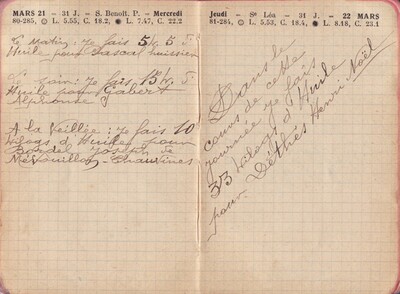 MARS 21 — 31 J. — S. Benoît, P. — Mercredi
80-285, L. 5.55, C. 18.2, L. 7.47, C. 22.2
Le Matin: je fais 5 k, 5
Huile pour Pascal huissier
Le soir: je fais 15 k,
Huile pour Gabert
Alphonse
A la Veillée: je fais 10
kilogs d'Huiles pour
Bordel Joseph de
Mévouillon-Chauvines
Jeudi — Ste Léa — 31 J. — 22 MARS
81-284, L. 5.53, C. 18.4, L. 8.18, C. 23.1
Dans le
cours de cette
journée je fais
33 kilogs d'Huile
pour Déthès Henri Noël